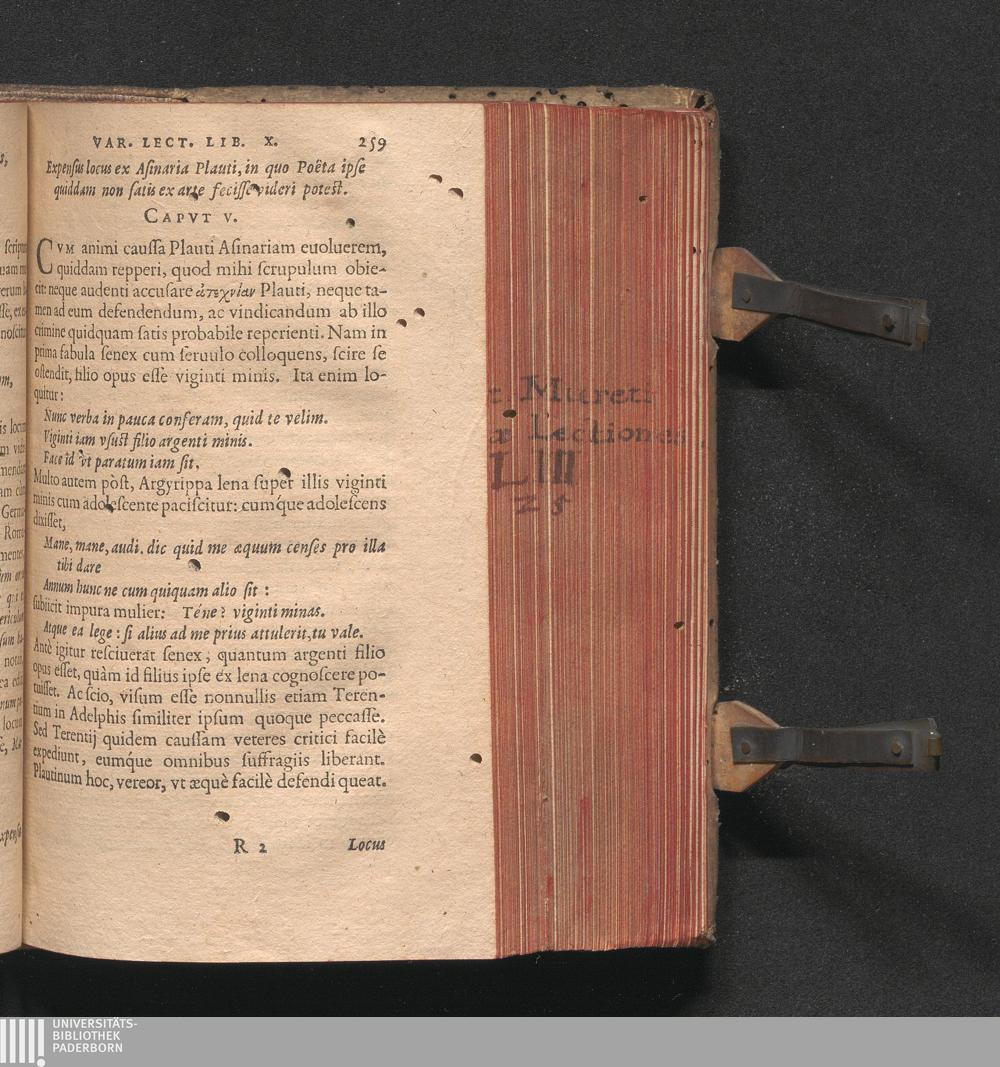 VAR. LECT. LIB. X. 259
Expensus locus ex Asinaria Plauti, in quo Poëta ipse
quiddam non satis ex arte fecisse videri potest.
CAPVT V.
CVM animi caussa Plauti Asinariam euoluerem,
quiddam repperi, quod mihi scrupulum obie-
cit: neque audenti accusare ἀτεχνίαν Plauti, neque ta-
men ad eum defendendum, ac vindicandum ab illo
crimine quidquam satis probabile reperienti. Nam in
prima fabula senex cum seruulo colloquens, scire se
ostendit, filio opus esse viginti minis. Ita enim lo-
quitur:
Nunc verba in pauca conferam, quid te velim.
Viginti iam vsust filio argenti minis.
Face id vt paratum iam sit.
Multo autem pòst, Argyrippa lena super illis viginti
minis cum adolescente paciscitur: cumq́ue adolescens
dixisset,
Mane, mane, audi. dic quid me æquum censes pro illa
tibi dare
Annum hunc ne cum quiquam alio sit:
subiicit impura mulier: Téne? viginti minas.
Atque ea lege: si alius ad me prius attulerit, tu vale.
Antè igitur resciuerat senex, quantum argenti filio
opus esset, quàm id filius ipse ex lena cognoscere po-
tuisset. Ac scio, visum esse nonnullis etiam Teren-
tium in Adelphis similiter ipsum quoque peccasse.
Sed Terentij quidem caussam veteres critici facilè
expediunt, eumq́ue omnibus suffragiis liberant.
Plautinum hoc, vereor, vt æquè facilè defendi queat.
R 2 Locus
t. Mureti
æ Lectiones
L III
25
UNIVERSITÄTS-
BIBLIOTHEK
PADERBORN